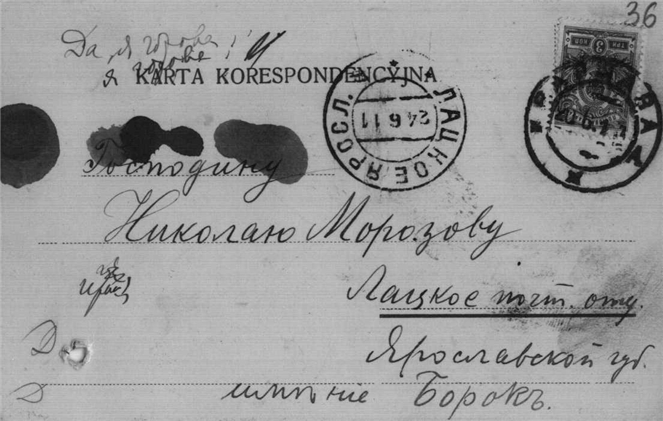 36
Да, я готова!
я готова
KARTA KORESPONDENCYJNA
ЛАЦКОЕ ЯРОСЛ.
24.6.11
ВАРШАВА
Господину
Николаю Морозову
Лацкое почт. отд.
Ярославской губ.
имѣніе Борокъ.